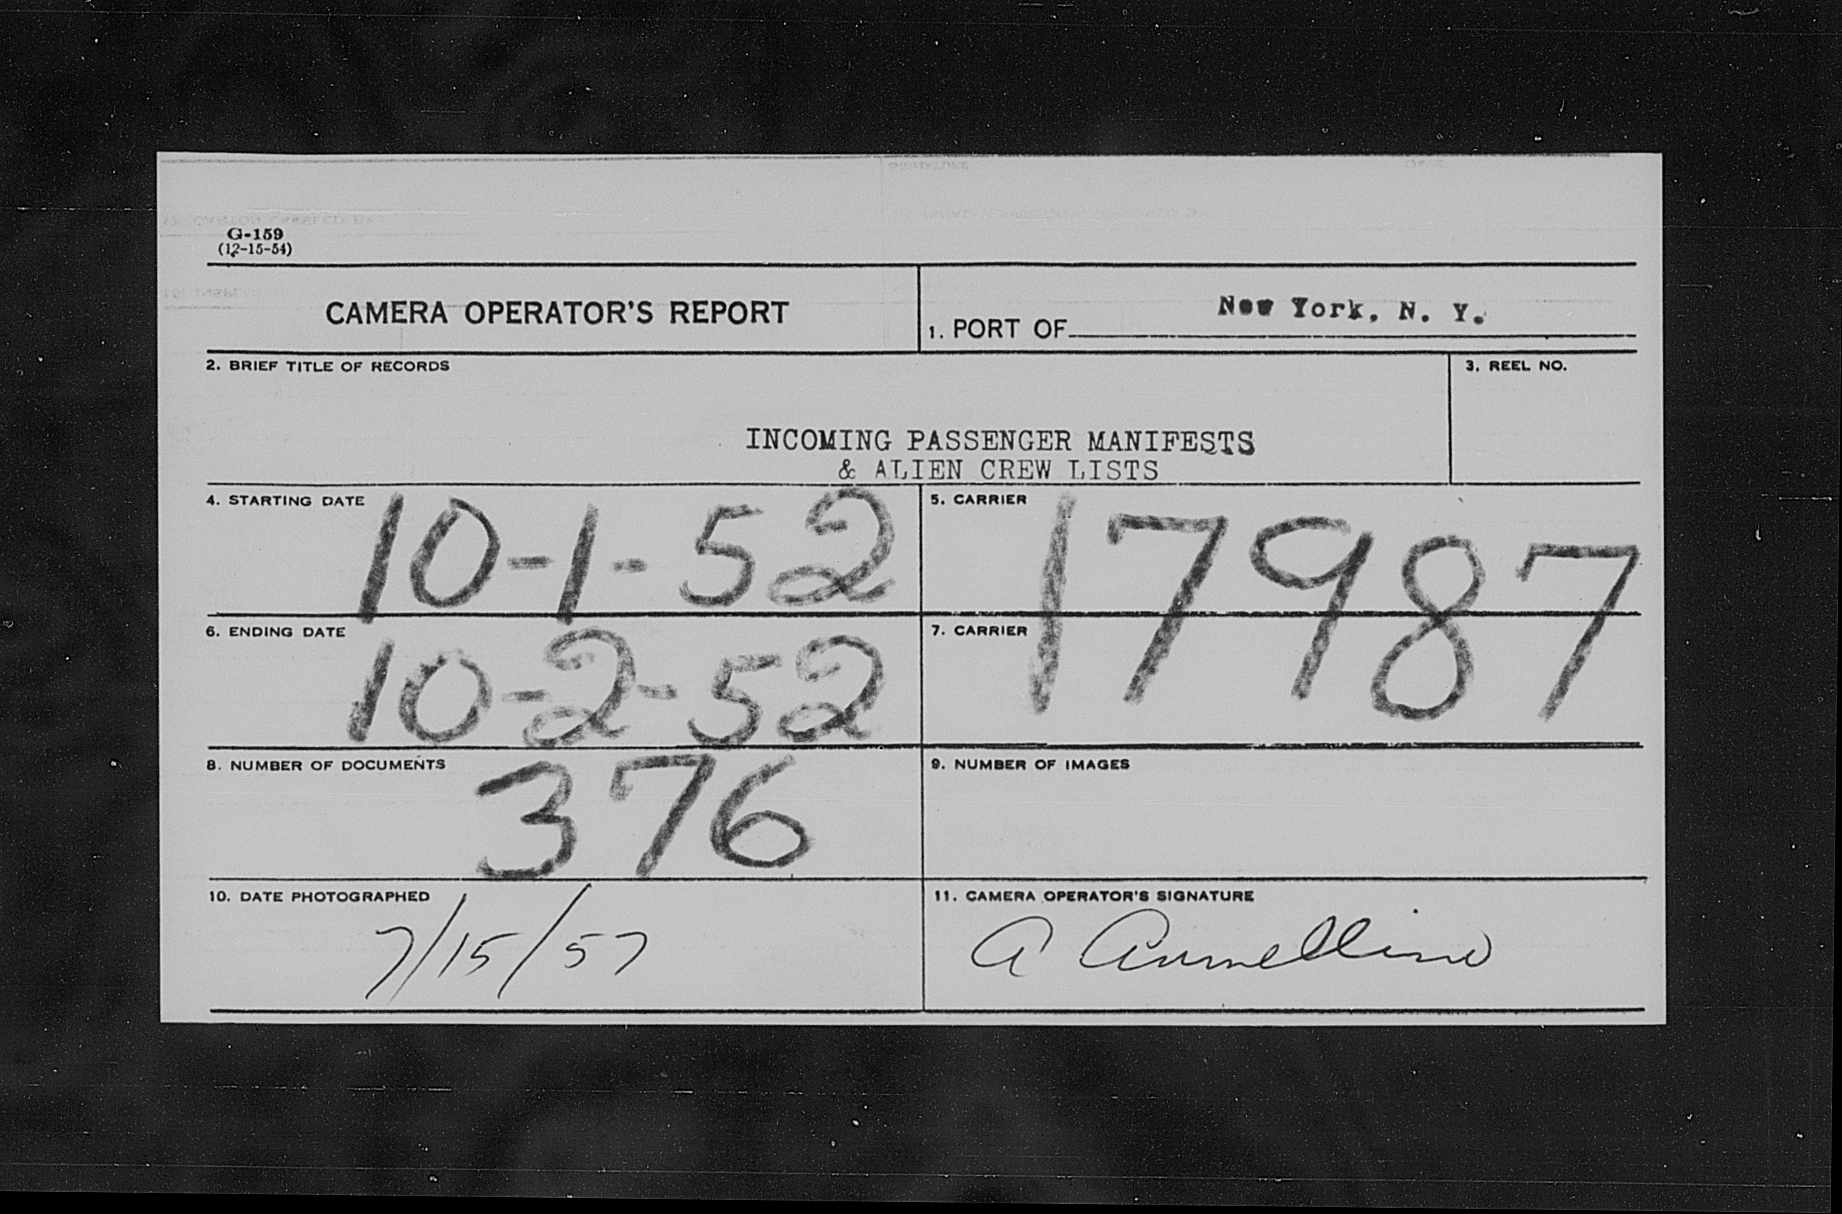 G-159
(12-15-54)
CAMERA OPERATOR'S REPORT
1. PORT OF New York, N. Y.
2. BRIEF TITLE OF RECORDS
3. REEL NO.
INCOMING PASSENGER MANIFESTS
& ALIEN CREW LISTS
4. STARTING DATE 10-1-52
5. CARRIER
17987
6. ENDING DATE 10-2-52
7. CARRIER
8. NUMBER OF DOCUMENTS 376
9. NUMBER OF IMAGES
10. DATE PHOTOGRAPHED
7/15/57
11. CAMERA OPERATOR'S SIGNATURE
A